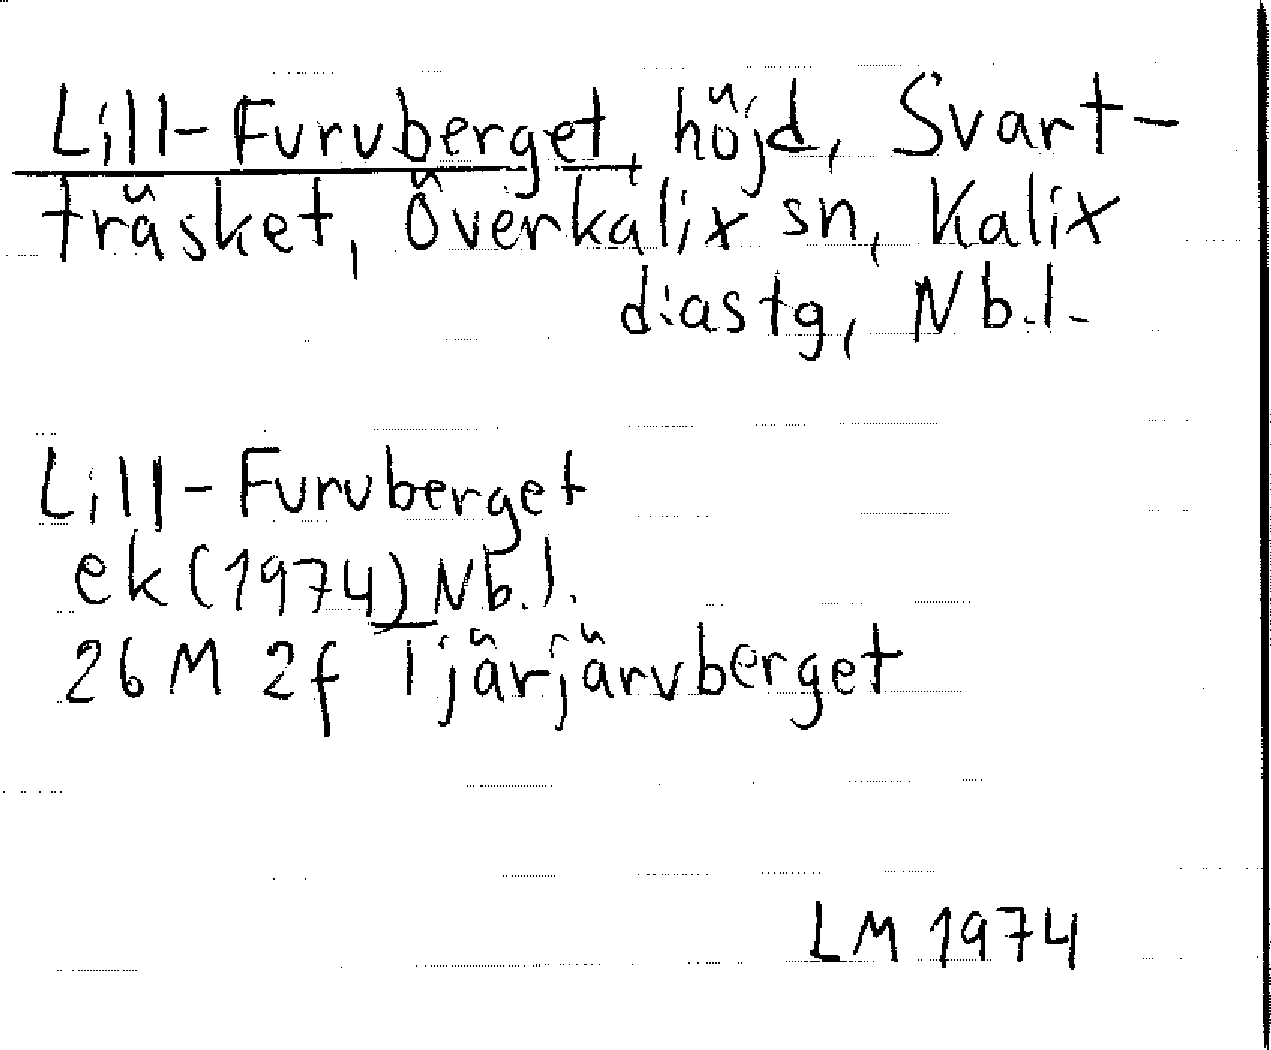 Lill-Furuberget, höjd, Svart-
träsket, Överkalix sn, Kalix
diastg, Nb.l.
Lill-Furuberget
ek (1974) Nb.l.
26 M 2f Tjärjärvberget
LM 1974